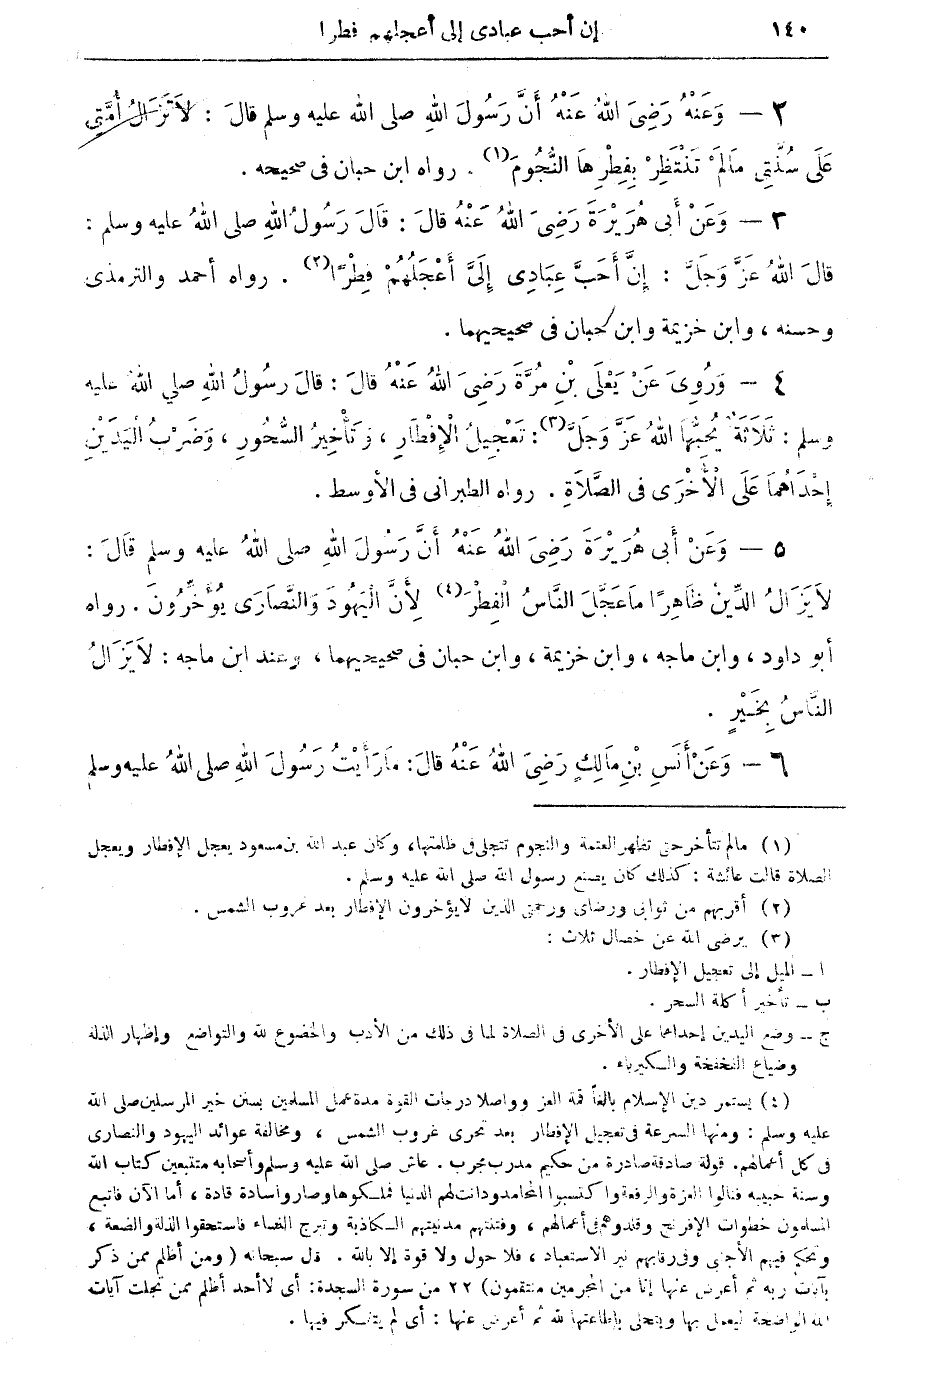 ١٤٠ إن أحب عبادى إلى أعجلهم فطرا
٢ — وَعَنْهُ رَضِىَ اللهُ عَنْهُ أَنَّ رَسُولَ اللهِ صلى الله عليه وسلم قالَ : لاَتَزَالُ أُمَّتِى
عَلَى سُنَّتِى مَالَمْ تَنْتَظِرْ بِفِطْرِهَا النُّجُومَ(١) . رواه ابن حبان فى صحيحه .
٣ — وَعَنْ أَبى هُرَيْرَةَ رَضِىَ اللهُ عَنْهُ قالَ : قَالَ رَسُولُ اللهِ صلى اللهُ عليه وسلم :
قالَ اللهُ عَزَّ وَجَلَّ : إِنَّ أَحَبَّ عِبَادِى إِلَىَّ أَعْجَلُهُمْ فِطْرًا(٢) . رواه أحمد والترمذى
وحسنه ، وابن خزيمة وابن حبان فى صحيحيهما .
٤ — وَرُوِىَ عَنْ يَعْلَى بْنِ مُرَّةَ رَضِىَ اللهُ عَنْهُ قالَ : قالَ رسُولُ اللهِ صلي اللهُ عليه
وسلم : ثَلَاثَةٌ يُحِبُّهَا اللهُ عَزَّ وَجَلَّ(٣): تَعْجِيلُ الْإِفْطَارِ ، وَتَأْخِيرُ السُّحُورِ ، وَضَرْبُ الْيَدَيْنِ
إِحْدَاهُمَا عَلَى الْأُخْرَى فى الصَّلَاةِ . رواه الطبرانى فى الأوسط .
٥ — وَعَنْ أَبى هُرَيْرَةَ رَضِىَ اللهُ عَنْهُ أَنَّ رَسُولَ اللهِ صلى اللهُ عليه وسلم قَالَ :
لاَيَزَالُ الدِّينُ ظَاهِرًا مَاعَجَّلَ النَّاسُ الْفِطْرَ(٤) لِأَنَّ الْيَهُودَ وَالنَّصَارَى يُؤَخِّرُونَ . رواه
أبو داود ، وابن ماجه ، وابن خزيمة ، وابن حبان فى صحيحيهما ، وعند ابن ماجه : لاَيَزَالُ
النَّاسُ بِخَيْرٍ .
٦ — وَعَنْ أَنَسِ بْنِ مَالِكٍ رَضِىَ اللهُ عَنْهُ قالَ: مَارَأَيْتُ رَسُولَ اللهِ صلى اللهُ عليه وسلم
(١) مالم تتأخر حتى تظهر العتمة والنجوم تتجلى فى ظلمتها، وكان عبد الله بن مسعود يعجل الإفطار ويعجل
الصلاة قالت عائشة : كذلك كان يصنع رسول الله صلى الله عليه وسلم .
(٢) أقربهم من ثوابى ورضاى ورحمتى الذين لايؤخرون الإفطار بعد غروب الشمس .
(٣) يرضى الله عن خصال ثلاث :
ا — الميل إلى تعجيل الإفطار .
ب — تأخير أكلة السحر .
ج — وضع اليدين إحداهما على الأخرى فى الصلاة لما فى ذلك من الأدب والخضوع لله والتواضع وإظهار الذلة
وضياع النخفخة والكبرياء .
(٤) يستمر دين الإسلام بالغاً قمة العز وواصلا درجات القوة مدة عمل المسلمين بسنن خير المرسلين صلى الله
عليه وسلم : ومنها السرعة فى تعجيل الإفطار بعد تحرى غروب الشمس ، ومخالفة عوائد اليهود والنصارى
فى كل أعمالهم. قولة صادقة صادرة من حكيم مدرب مجرب . عاش صلى الله عليه وسلم وأصحابه متتبعين كتاب الله
وسنة حبيبه فنالوا العزة والرفعة واكتسبوا المحامد ودانت لهم الدنيا فملكوها وصاروا سادة قادة ، أما الآن فاتبع
المسلمون خطوات الإفرنج وقلدوهم فى أعمالهم ، وفتنتهم مدنيتهم الكاذبة وتبرج النساء فاستحقوا الذلة والضعة ،
وتحكم فيهم الأجنبى وفى رقابهم نير الاستعباد ، فلا حول ولا قوة إلا بالله . قال سبحانه ( ومن أظلم ممن ذكر
بآيات ربه ثم أعرض عنها إنا من المجرمين منتقمون) ٢٢ من سورة السجدة: أى لا أحد أظلم ممن تجلت آيات
الله الواضحة ليعمل بها ويتحلى بإطاعتها لله ثم أعرض عنها : أى لم يتفكر فيها .